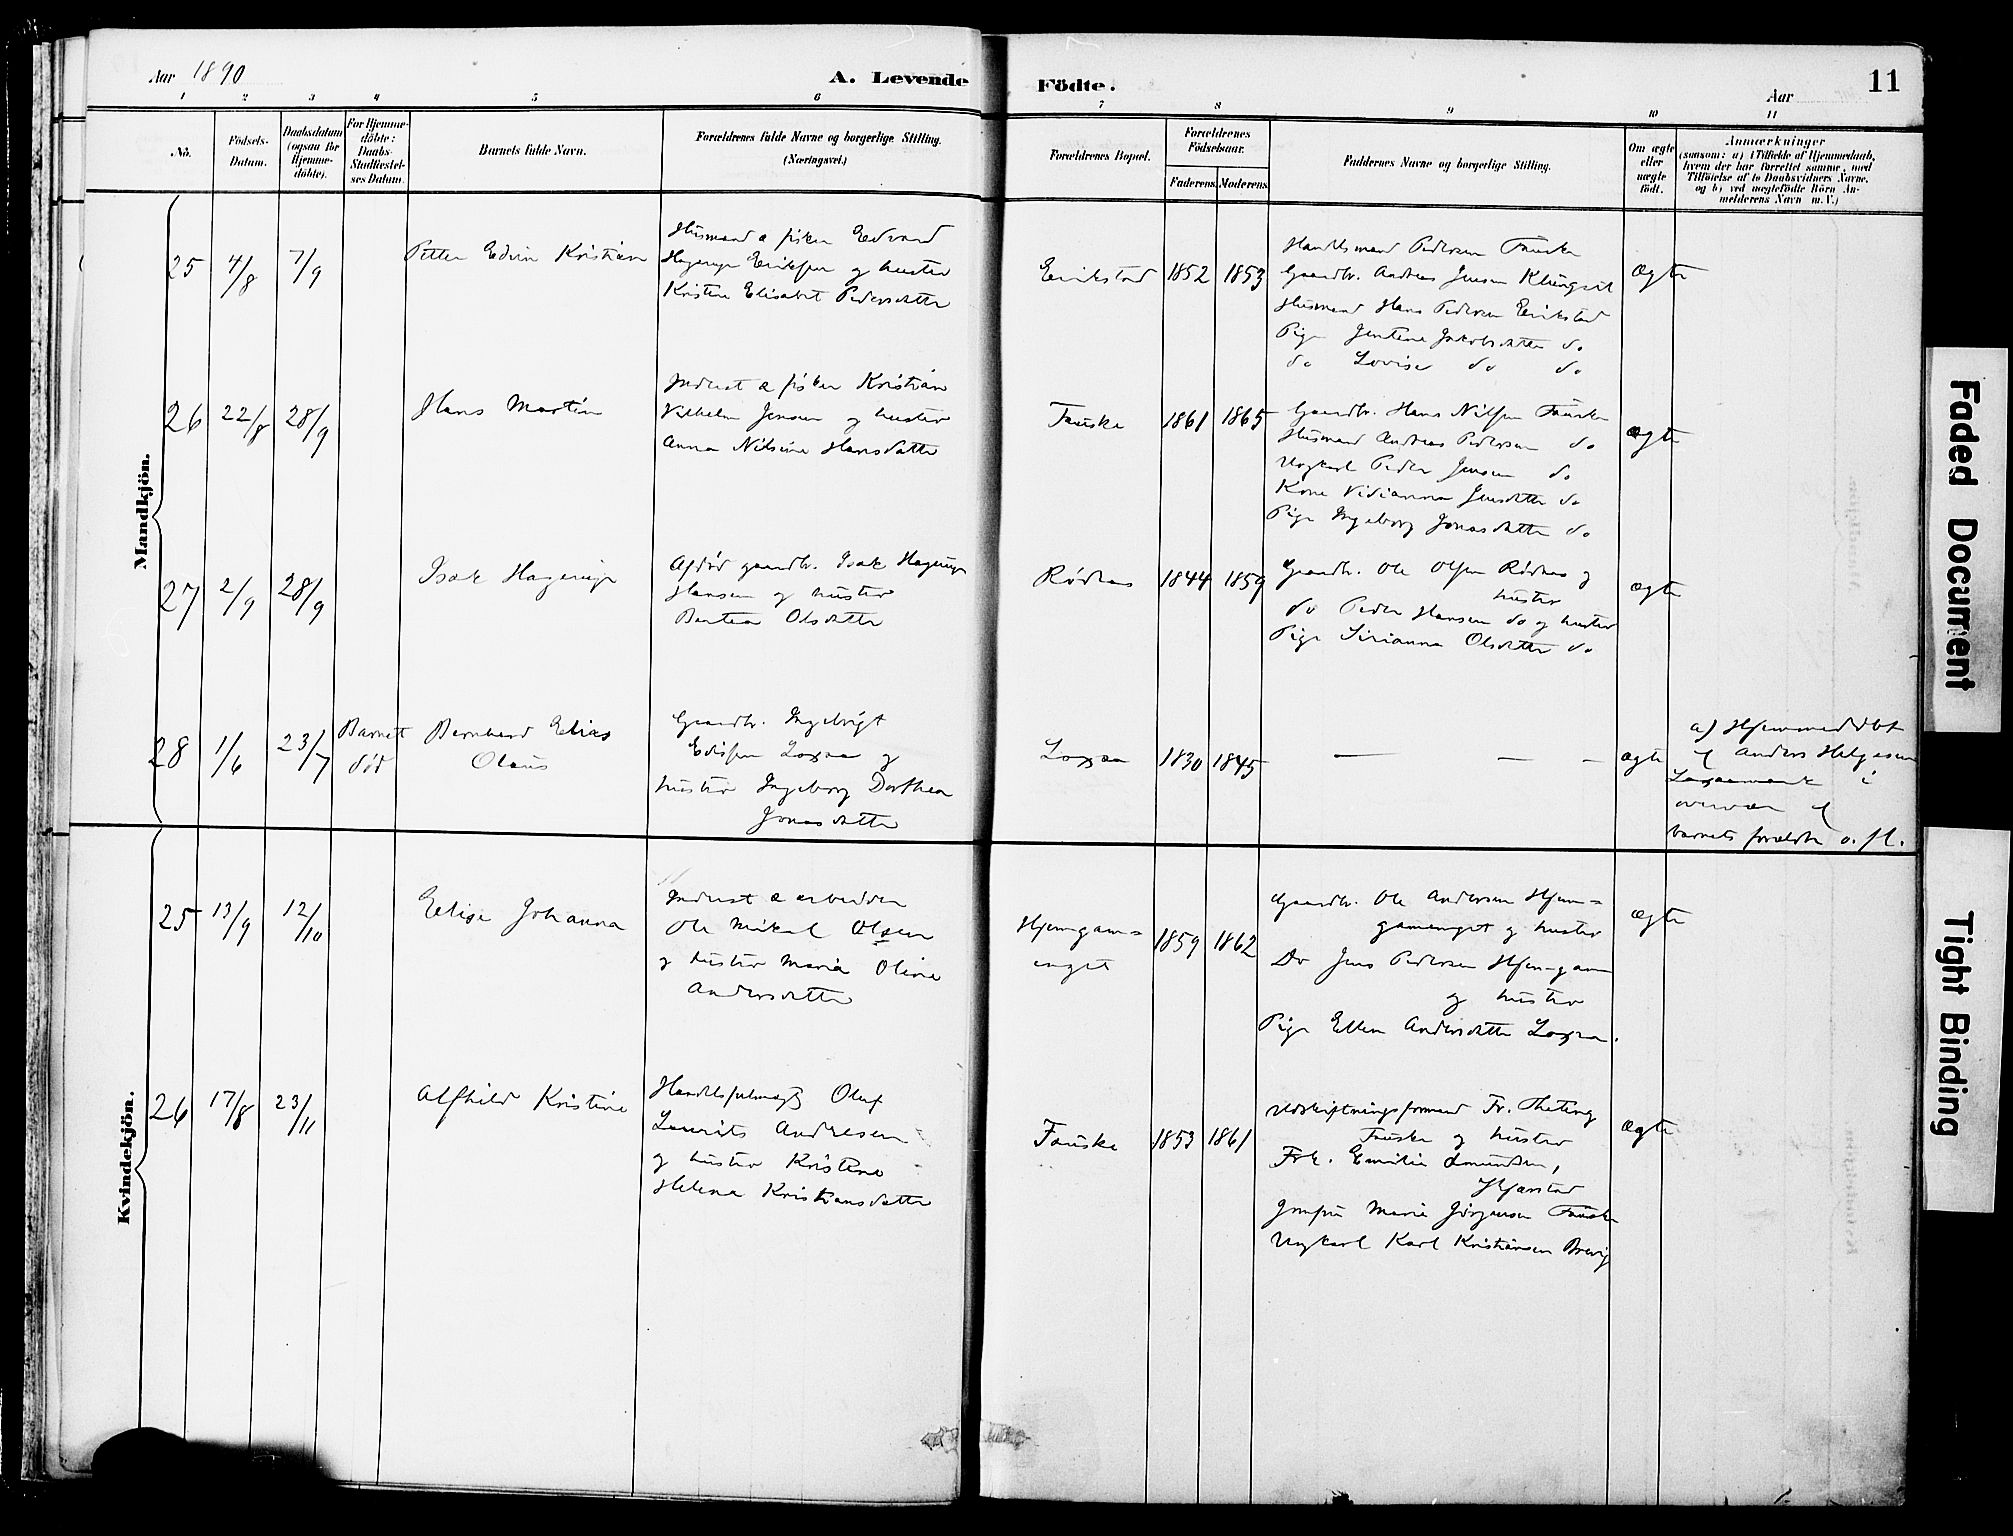 Aar 1890
A. Levende
Födte.
Aar
11
1 2 3 4 5 6 7 8 9 10 11
No.
Födsels-Datum.
Daabsdatum (ogsaa for Hjemme-döbte).
For Hjemme-döbte: Daabs-Stadfæstel-ses Datum.
Barnets fulde Navn.
Forældrenes fulde Navne og borgerlige Stilling. (Næringsvei.)
Forældrenes Bopæl.
Forældrenes Födselsaar.
Faderens. Moderens.
Faddernes Navne og borgerlige Stilling.
Om ægte eller uægte födt.
Anmærkninger
(saasom: a) i Tilfælde af Hjemmedaab,
hvem der har forrettet samme, med
Tilföielse af to Daabsvidners Navne.
og b) ved uægtefödte Börn An-
melderens Navn m. V.)
Mandkjön.
25 4/8 7/9
Petter Edvin Kristian
Husmand & fisker Edvard
Hagerup Eriksen og hustru
Kristine Elisabet Pedersdatter
Erikstad 1852 1853
Handelsmand Pedersen Fauske
Gaardbr. Andreas Jensen Klungset
Husmand Hans Pedersen Erikstad
Pige Jentine Jakobsdatter do
do Lovise do do
ægte
26 22/8 28/9
Hans Martin
Inderst & fisker Kristian
Vilhelm Jensen og hustru
Anna Nilsine Hansdatter
Fauske 1861 1865
Gaardbr. Hans Nilsen Fauske
Husmand Andreas Pedersen do
Ungkarl Peder Jensen do
Kone Vidianna Jensdatter do
Pige Ingeborg Jonasdatter do
ægte
27 2/9 28/9
Isak Hagerup
Afdød gaardbr. Isak Hagerup
Hansen og hustru
Bentea Olsdatter
Rødaas 1844 1859
Gaardbr. Ole Olsen Rødaas og
hustru
do Peder Hansen do og hustru
Pige Sirianna Olsdatter do
ægte
28 1/6 23/7
Barnet
død
Bernhard Elias
Olaus
Gaardbr. Ingebrigt
Edisen Loxaa og
hustru Ingeborg Dorthea
Jonasdatter
Loxaa 1830 1845
— — —
ægte
a) Hjemmedøbt
af Anders Helgesen
i
overvær af
barnets forældre o. fl.
Kvindekjön.
25 13/9 12/10
Elise Johanna
Inderst & arbeider
Ole Mikal Olsen
og hustru Maria Oline
Andersdatter
Hjemgam=
enget
1859 1862
Gaardbr. Ole Andersen Hjem=
gamenget og hustru
Do Jens Pedersen Hjemgam
og hustru
Pige Ellen Andersdatter Loxaa.
ægte
26 17/8 23/11
Alfhild Kristine
Handelsfuldmægt. Oluf
Laurits Andresen
og hustru Kristine
Helena Kristiansdatter
Fauske 1853 1861
Udskiftningsformand Fr. Theting
Fauske og hustru
Frk. Emilie Amundsen,
Hjarstad
Jomfru Marie Jørgensen Fauske
Ungkarl Karl Kristiansen Brevig
ægte
Faded Document
Tight Binding